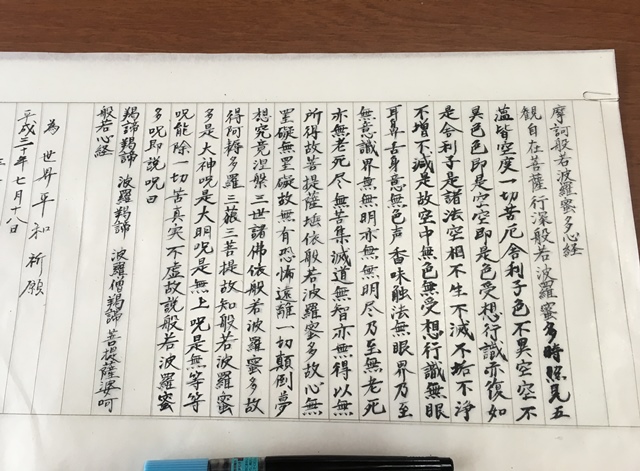 摩訶般若波羅蜜多心経
観自在菩薩行深般若波羅蜜多時照見五
蘊皆空度一切苦厄舎利子色不異空空不
異色色即是空空即是色受想行識亦復如
是舎利子是諸法空相不生不滅不垢不浄
不増不減是故空中無色無受想行識無眼
耳鼻舌身意無色声香味触法無眼界乃至
無意識界無無明亦無無明尽乃至無老死
亦無老死尽無苦集滅道無智亦無得以無
所得故菩提薩埵依般若波羅蜜多故心無
罣礙無罣礙故無有恐怖遠離一切顛倒夢
想究竟涅槃三世諸佛依般若波羅蜜多故
得阿耨多羅三藐三菩提故知般若波羅蜜
多是大神呪是大明呪是無上呪是無等等
呪能除一切苦真実不虚故説般若波羅蜜
多呪即説呪曰
羯諦羯諦 波羅羯諦 波羅僧羯諦 菩提薩婆呵
般若心経
為 世界平和祈願
平成三十年七月十八日